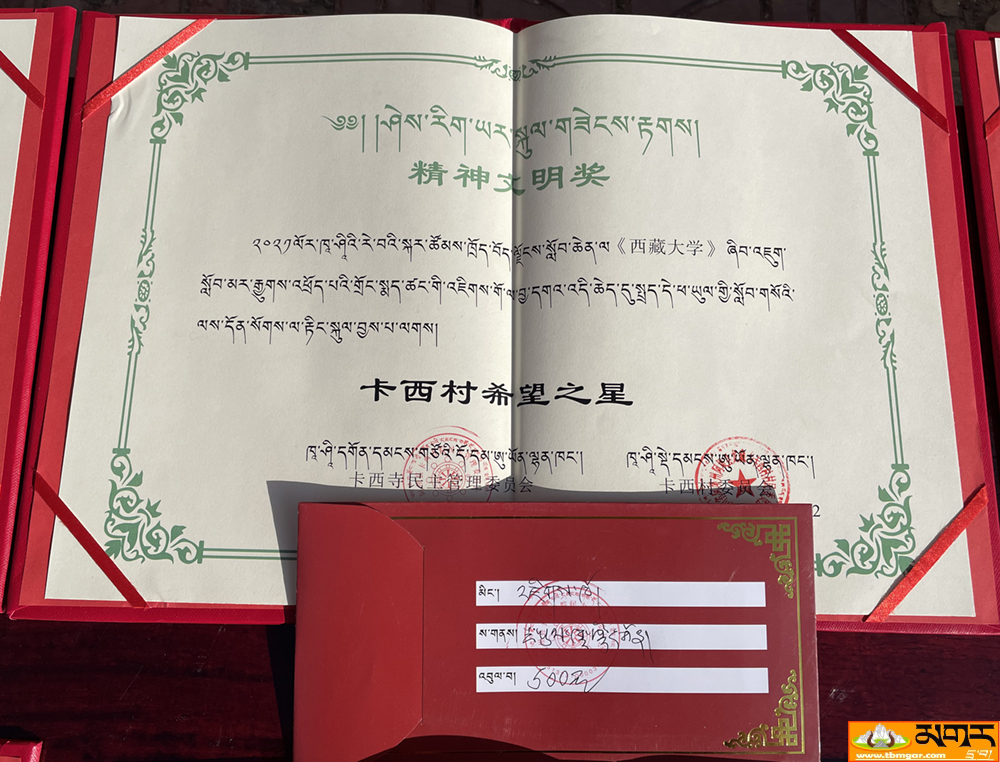 ༄༅། །ཤེས་རིག་ཡར་སྐུལ་གཟེངས་རྟགས།
精神文明奖
༢༠༢༡ལོར་ཁྭ་ཤཱིའི་རེ་བའི་སྐར་ཚོམས་ཁྲོད་བོད་ལྗོངས་སློབ་ཆེན་ལ《西藏大学》ཞིབ་འཇུག་
སློབ་མར་རྒྱུགས་འཕྲོད་པའི་གྲོང་སྨད་ཚང་གི་འཇིགས་གོ་ལ་བྱ་དགའ་འདི་ཆེད་དུ་སྤྲད་དེ་ཕ་ཡུལ་གྱི་སློབ་གསོའི་
ལས་དོན་སོགས་ལ་རྟིང་སྐུལ་བྱས་པ་ལགས།
卡西村希望之星
ཁྭ་ཤཱི་དགོན་དམངས་གཙོའི་དོ་དམ་ཨུ་ཡོན་ལྷན་ཁང་།
ཁྭ་ཤཱི་སྡེ་དམངས་ཨུ་ཡོན་ལྷན་ཁང་།
卡西寺民主管理委员会
卡西村委员会
2
མིང་།
ས་གནས།
འབུལ་བ།
5002
མགར
www.tbmgar.com